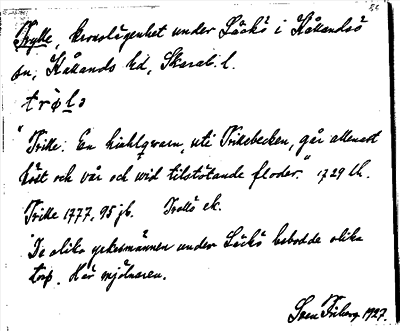 Trylle, kronolägenhet under Läckö i Kållandsö
sn, Kållands hd, Skarab. l.
"Trike. En hiuhlqvarn, uti Trikebecken, går allenast
höst och vår och wid tilstötande floder." 1729 lh.
Trike 1777. 95 jb. Trollö ek.
De olika yrkesmännen under Läckö bebodde olika
torp. Här mjölnaren.
Sven Friberg 1927.